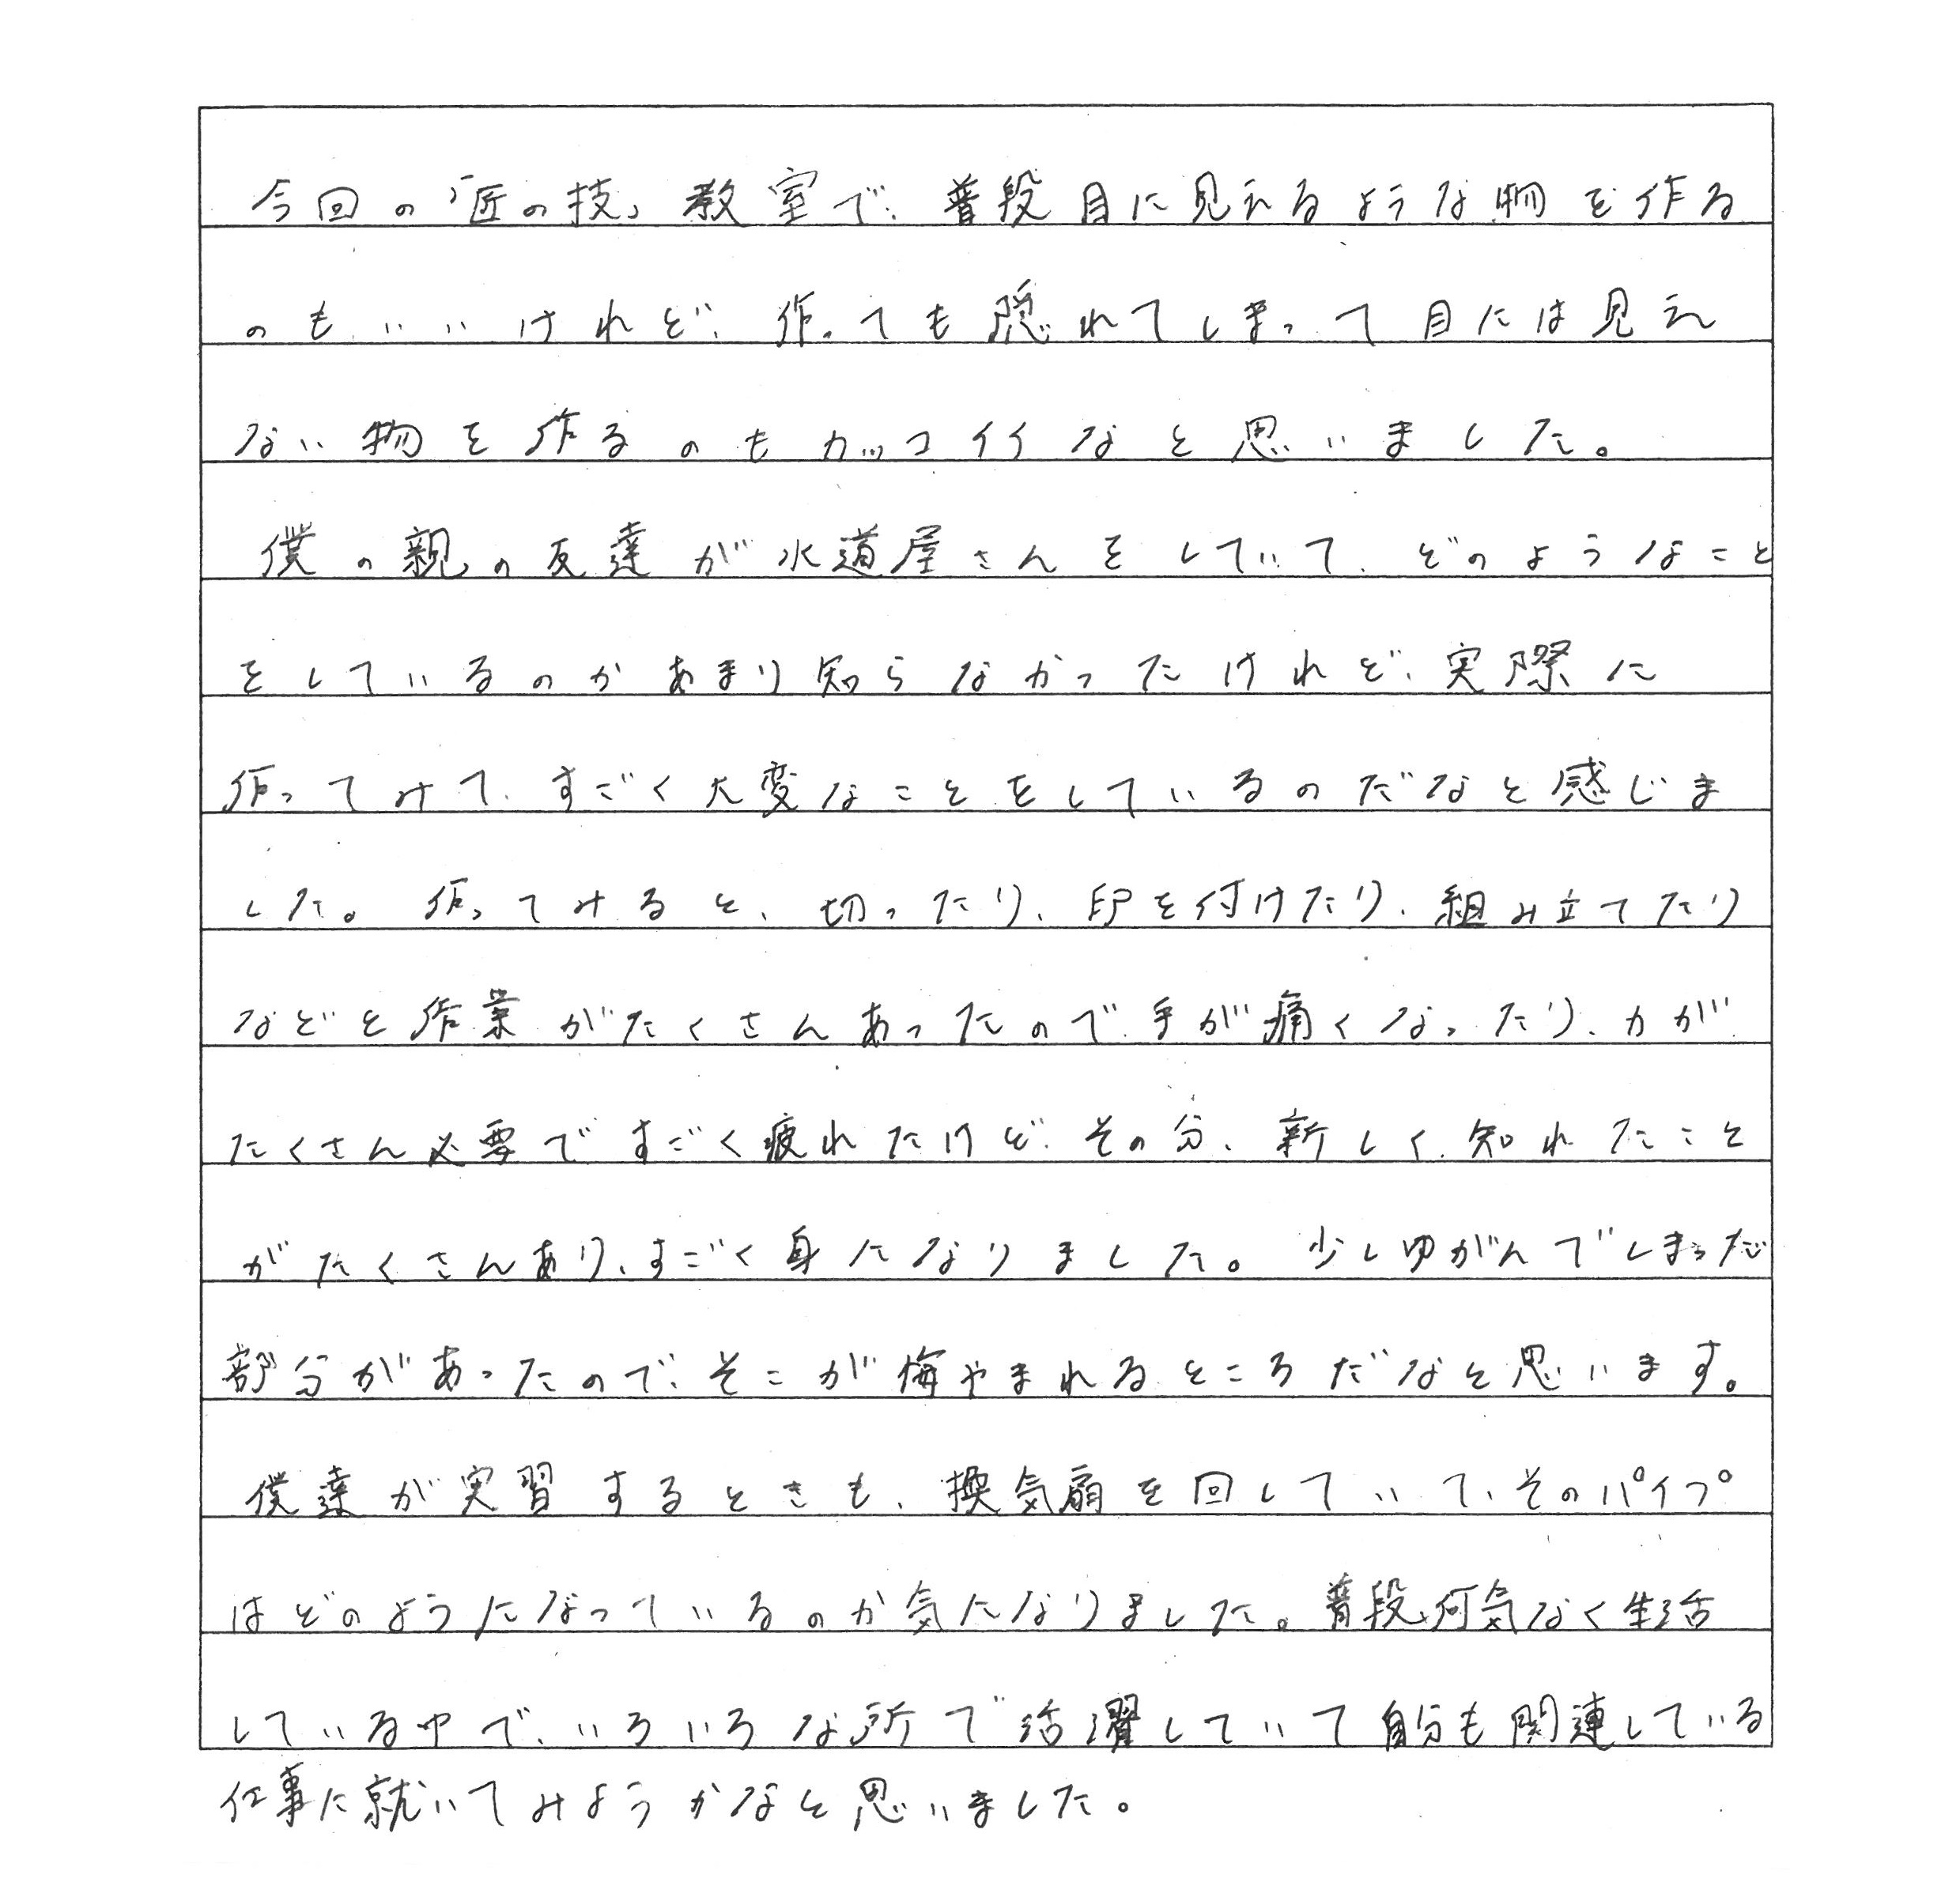 今回の「匠の技」教室で、普段目に見えるような物を作る
のもいいけれど、作っても隠れてしまって目には見え
ない物を作るのもカッコイイなと思いました。
僕の親の友達が水道屋さんをしていて、どのようなこと
をしているのかあまり知らなかったけれど、実際に
作ってみて、すごく大変なことをしているのだなと感じま
した。作ってみると、切ったり、印を付けたり、組み立てたり
などと作業がたくさんあったので、手が痛くなったり、力が
たくさん必要ですごく疲れたけど、その分、新しく知れたこと
がたくさんあり、すごく身になりました。少しゆがんでしまった
部分があったので、そこが悔やまれるところだなと思います。
僕達が実習するときも、換気扇を回していて、そのパイプ
はどのようになっているのか気になりました。普段何気なく生活
している中で、いろいろな所で活躍していて自分も関連している
仕事に就いてみようかなと思いました。